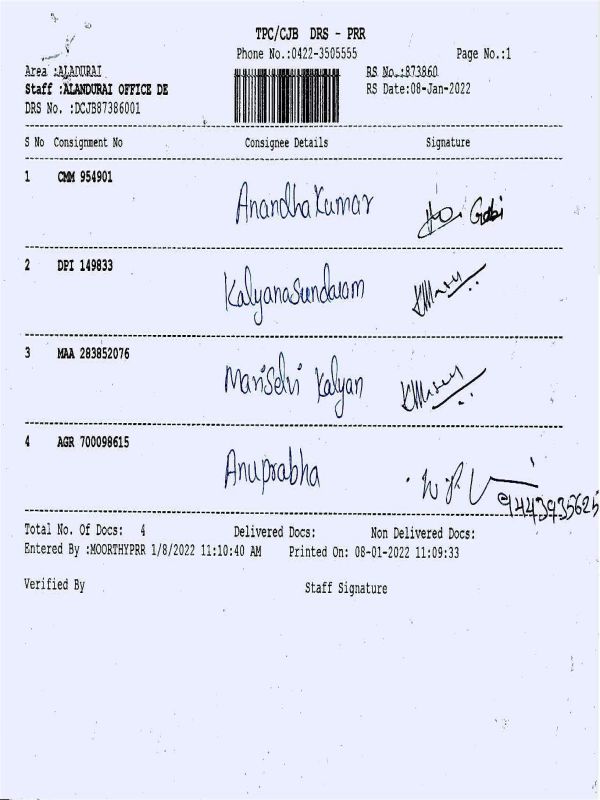 TPC/CJB DRS - PRR
Phone No.:0422-3505555 Page No.:1
Area :ALADURAI RS No.:873860
Staff :ALANDURAI OFFICE DE RS Date:08-Jan-2022
DRS No. :DCJB87386001
S No Consignment No Consignee Details Signature
1 CMM 954901 AnandhaKumar Gobi
2 DPI 149833 Kalyanasundaram
3 MAA 283852076 Mariselvi Kalyan
4 AGR 700098615 Anuprabha
9443935625
Total No. Of Docs: 4 Delivered Docs: Non Delivered Docs:
Entered By :MOORTHYPRR 1/8/2022 11:10:40 AM Printed On: 08-01-2022 11:09:33
Verified By Staff Signature